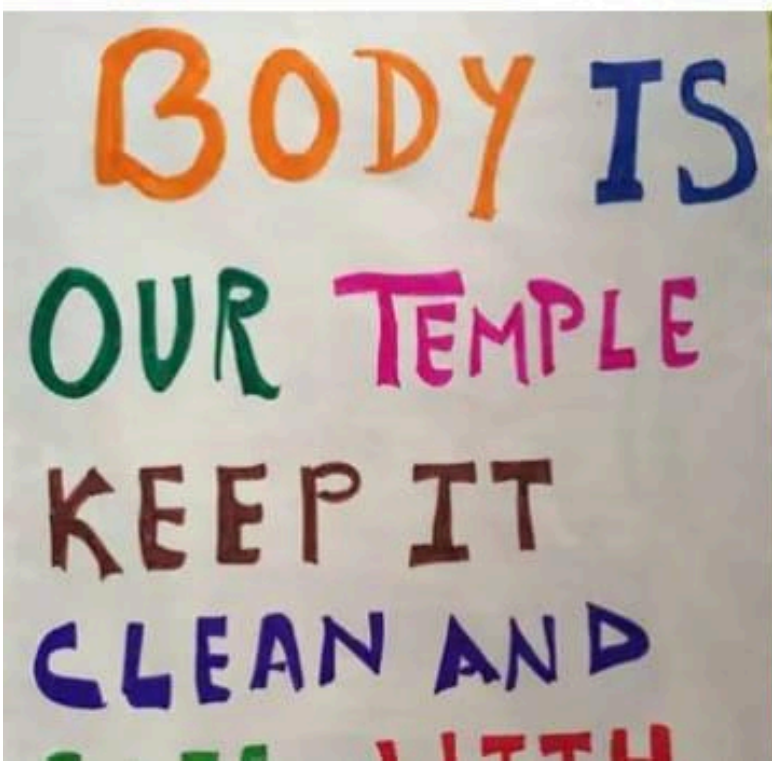 BODY IS
OUR TEMPLE
KEEP IT
CLEAN AND
WITH